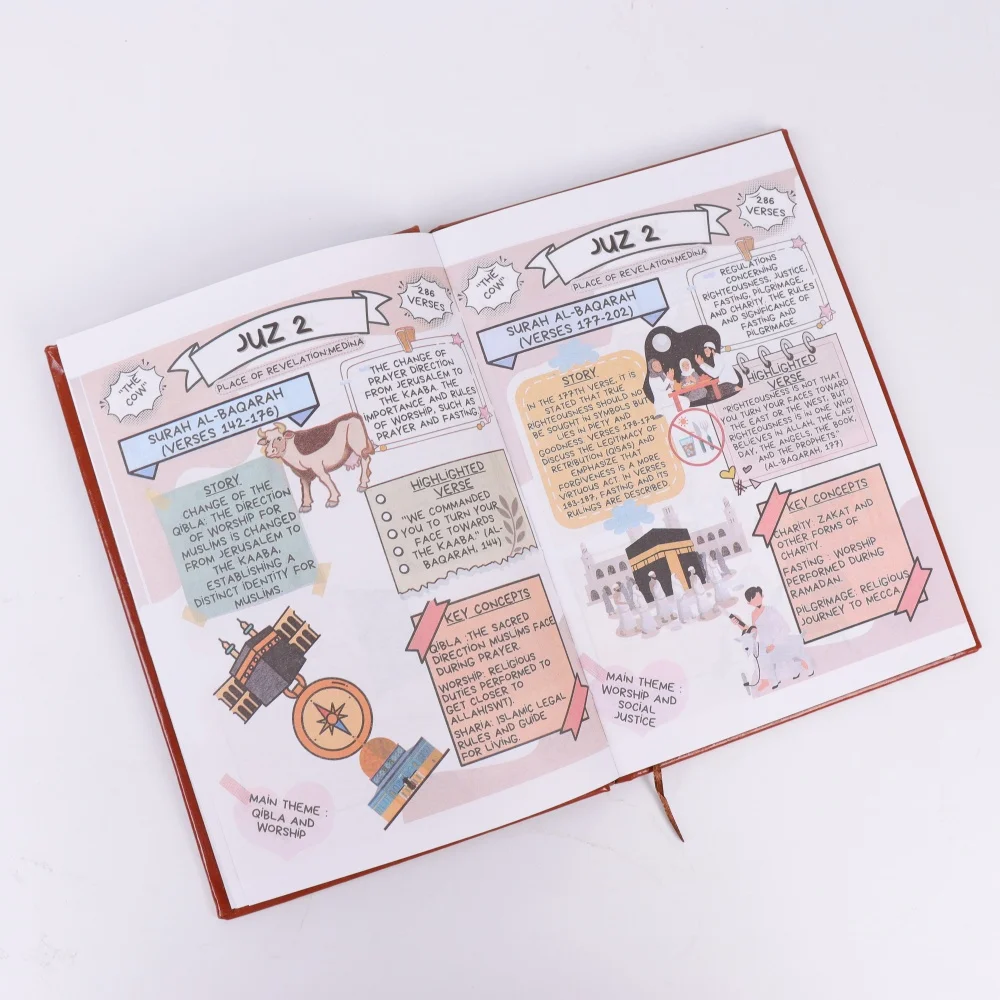 JUZ 2
"THE
COW"
286
VERSES
PLACE OF REVELATION:MEDINA
SURAH AL-BAQARAH
(VERSES 142-176)
THE CHANGE OF
PRAYER DIRECTION
FROM JERUSALEM TO
THE KAABA. THE
IMPORTANCE AND RULES
OF WORSHIP, SUCH AS
PRAYER AND FASTING
STORY
CHANGE OF THE
QIBLA: THE DIRECTION
OF WORSHIP FOR
MUSLIMS IS CHANGED
FROM JERUSALEM TO
THE KAABA,
ESTABLISHING A
DISTINCT IDENTITY FOR
MUSLIMS.
HIGHLIGHTED
VERSE
"WE COMMANDED
YOU TO TURN YOUR
FACE TOWARDS
THE KAABA" (AL-
BAQARAH, 144)
KEY CONCEPTS
QIBLA :THE SACRED
DIRECTION MUSLIMS FACE
DURING PRAYER.
WORSHIP: RELIGIOUS
DUTIES PERFORMED TO
GET CLOSER TO
ALLAH(SWT).
SHARIA: ISLAMIC LEGAL
RULES AND GUIDE
FOR LIVING.
MAIN THEME :
QIBLA AND
WORSHIP
JUZ 2
"THE
COW"
286
VERSES
PLACE OF REVELATION:MEDINA
SURAH AL-BAQARAH
(VERSES 177-202)
REGULATIONS
CONCERNING
RIGHTEOUSNESS, JUSTICE,
FASTING, PILGRIMAGE,
AND CHARITY. THE RULES
AND SIGNIFICANCE OF
FASTING AND
PILGRIMAGE.
STORY
IN THE 177TH VERSE, IT IS
STATED THAT TRUE
RIGHTEOUSNESS SHOULD NOT
BE SOUGHT IN SYMBOLS BUT
LIES IN PIETY AND
GOODNESS. VERSES 178-179
DISCUSS THE LEGITIMACY OF
RETRIBUTION (QISAS) AND
EMPHASIZE THAT
FORGIVENESS IS A MORE
VIRTUOUS ACT. IN VERSES
183-187, FASTING AND ITS
RULINGS ARE DESCRIBED.
HIGHLIGHTED
VERSE
"RIGHTEOUSNESS IS NOT THAT
YOU TURN YOUR FACES TOWARD
THE EAST OR THE WEST, BUT
RIGHTEOUSNESS IS IN ONE WHO
BELIEVES IN ALLAH, THE LAST
DAY, THE ANGELS, THE BOOK,
AND THE PROPHETS"
(AL-BAQARAH, 177)
KEY CONCEPTS
CHARITY: ZAKAT AND
OTHER FORMS OF
CHARITY.
FASTING : WORSHIP
PERFORMED DURING
RAMADAN.
PILGRIMAGE: RELIGIOUS
JOURNEY TO MECCA
MAIN THEME :
WORSHIP AND
SOCIAL
JUSTICE